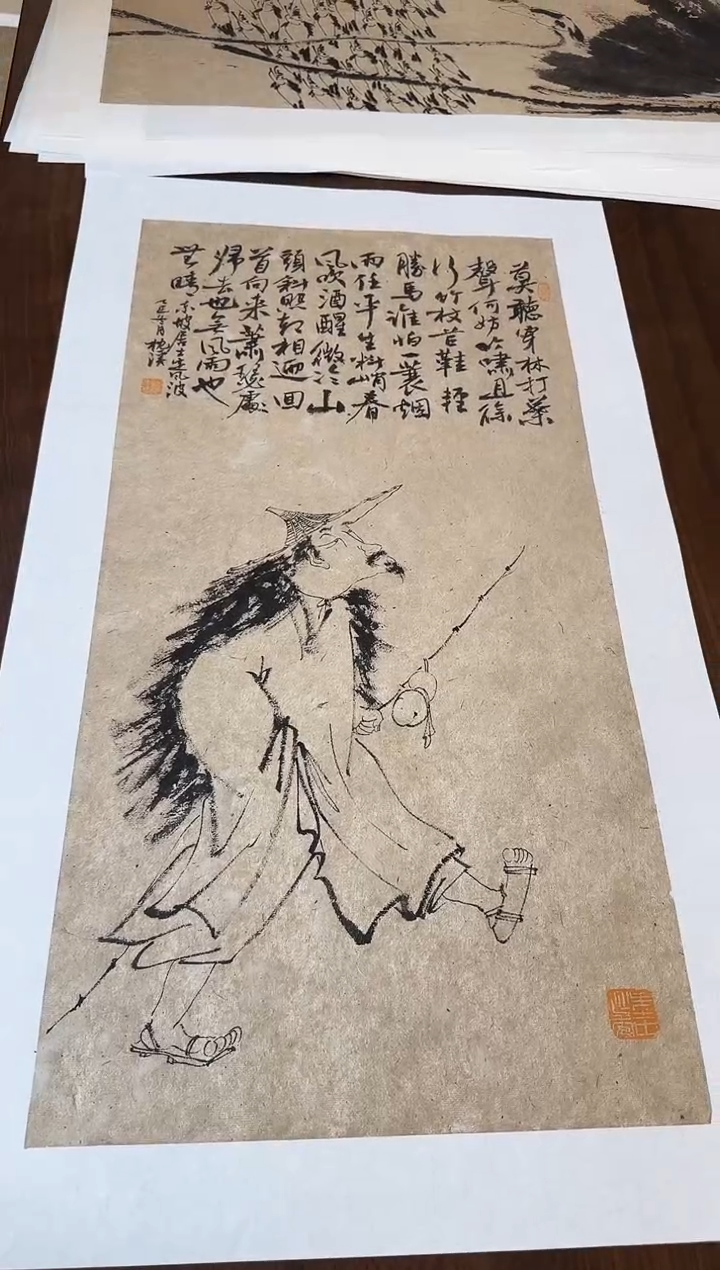 莫聽穿林打葉
聲何妨吟嘯且徐
行竹杖芒鞋輕
勝馬誰怕一蓑烟
雨任平生料峭春
風吹酒醒微冷山
頭斜照却相迎回
首向来蕭瑟處
歸去也无風雨也
無晴 東坡居士定風波
乙巳 月